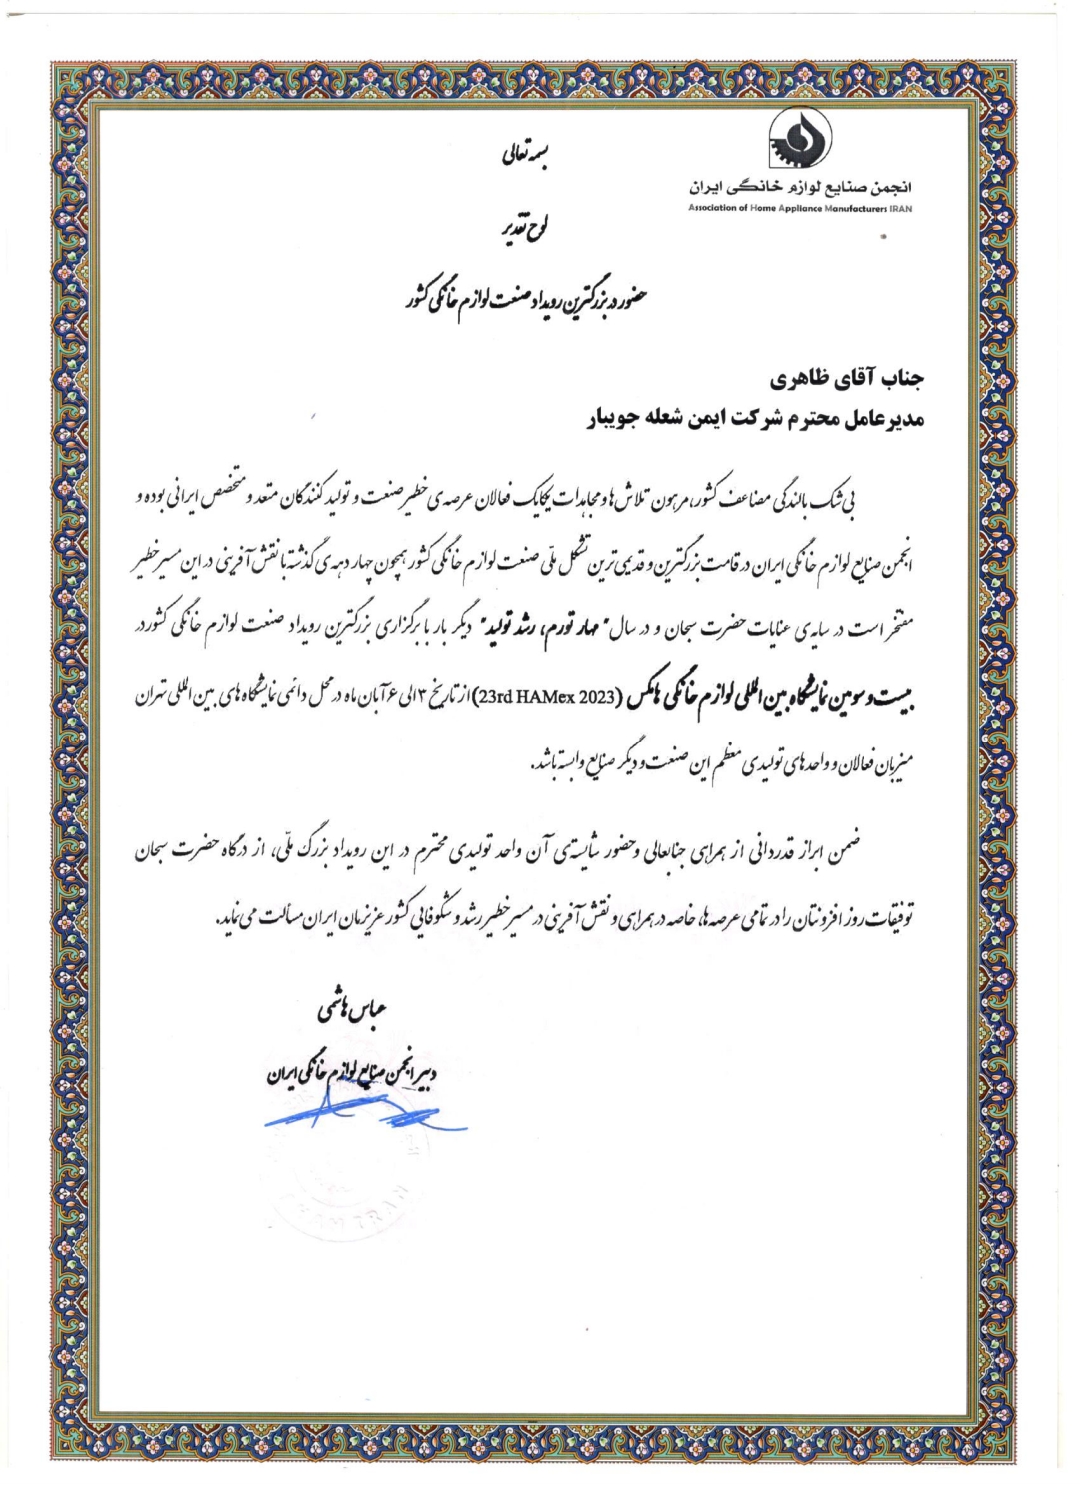 انجمن صنایع لوازم خانگی ایران
Association of Home Appliance Manufacturers IRAN
بسمه تعالی
لوح تقدیر
حضور در بزرگترین رویداد صنعت لوازم خانگی کشور
جناب آقای ظاهری
مدیرعامل محترم شرکت ایمن شعله جویبار
بی شک بالندگی مضاعف کشور، مرهون تلاش ها و مجاهدات یکایک فعالان عرصه ی خطیر صنعت و تولید کنندگان متعهد و متخصص ایرانی بوده و
انجمن صنایع لوازم خانگی ایران در قامت بزرگترین و قدیمی ترین تشکل ملّی صنعت لوازم خانگی کشور همچون چهار دهه ی گذشته با نقش آفرینی در این مسیر خطیر
مفتخر است در سایه ی عنایات حضرت سبحان و در سال "مهار تورم، رشد تولید" دیگر بار با برگزاری بزرگترین رویداد صنعت لوازم خانگی کشور در
بیست و سومین نمایشگاه بین المللی لوازم خانگی هامکس (23rd HAMex 2023) از تاریخ ۳ الی ۶ آبان ماه در محل دائمی نمایشگاه های بین المللی تهران
میزبان فعالان و واحدهای تولیدی معظم این صنعت و دیگر صنایع وابسته باشد.
ضمن ابراز قدردانی از همراهی جنابعالی و حضور شایسته ی آن واحد تولیدی محترم در این رویداد بزرگ ملّی، از درگاه حضرت سبحان
توفیقات روز افزونتان را در تمامی عرصه ها، خاصه در همراهی و نقش آفرینی در مسیر خطیر رشد و شکوفایی کشور عزیزمان ایران مسألت می نماید.
عباس هاشمی
دبیر انجمن صنایع لوازم خانگی ایران